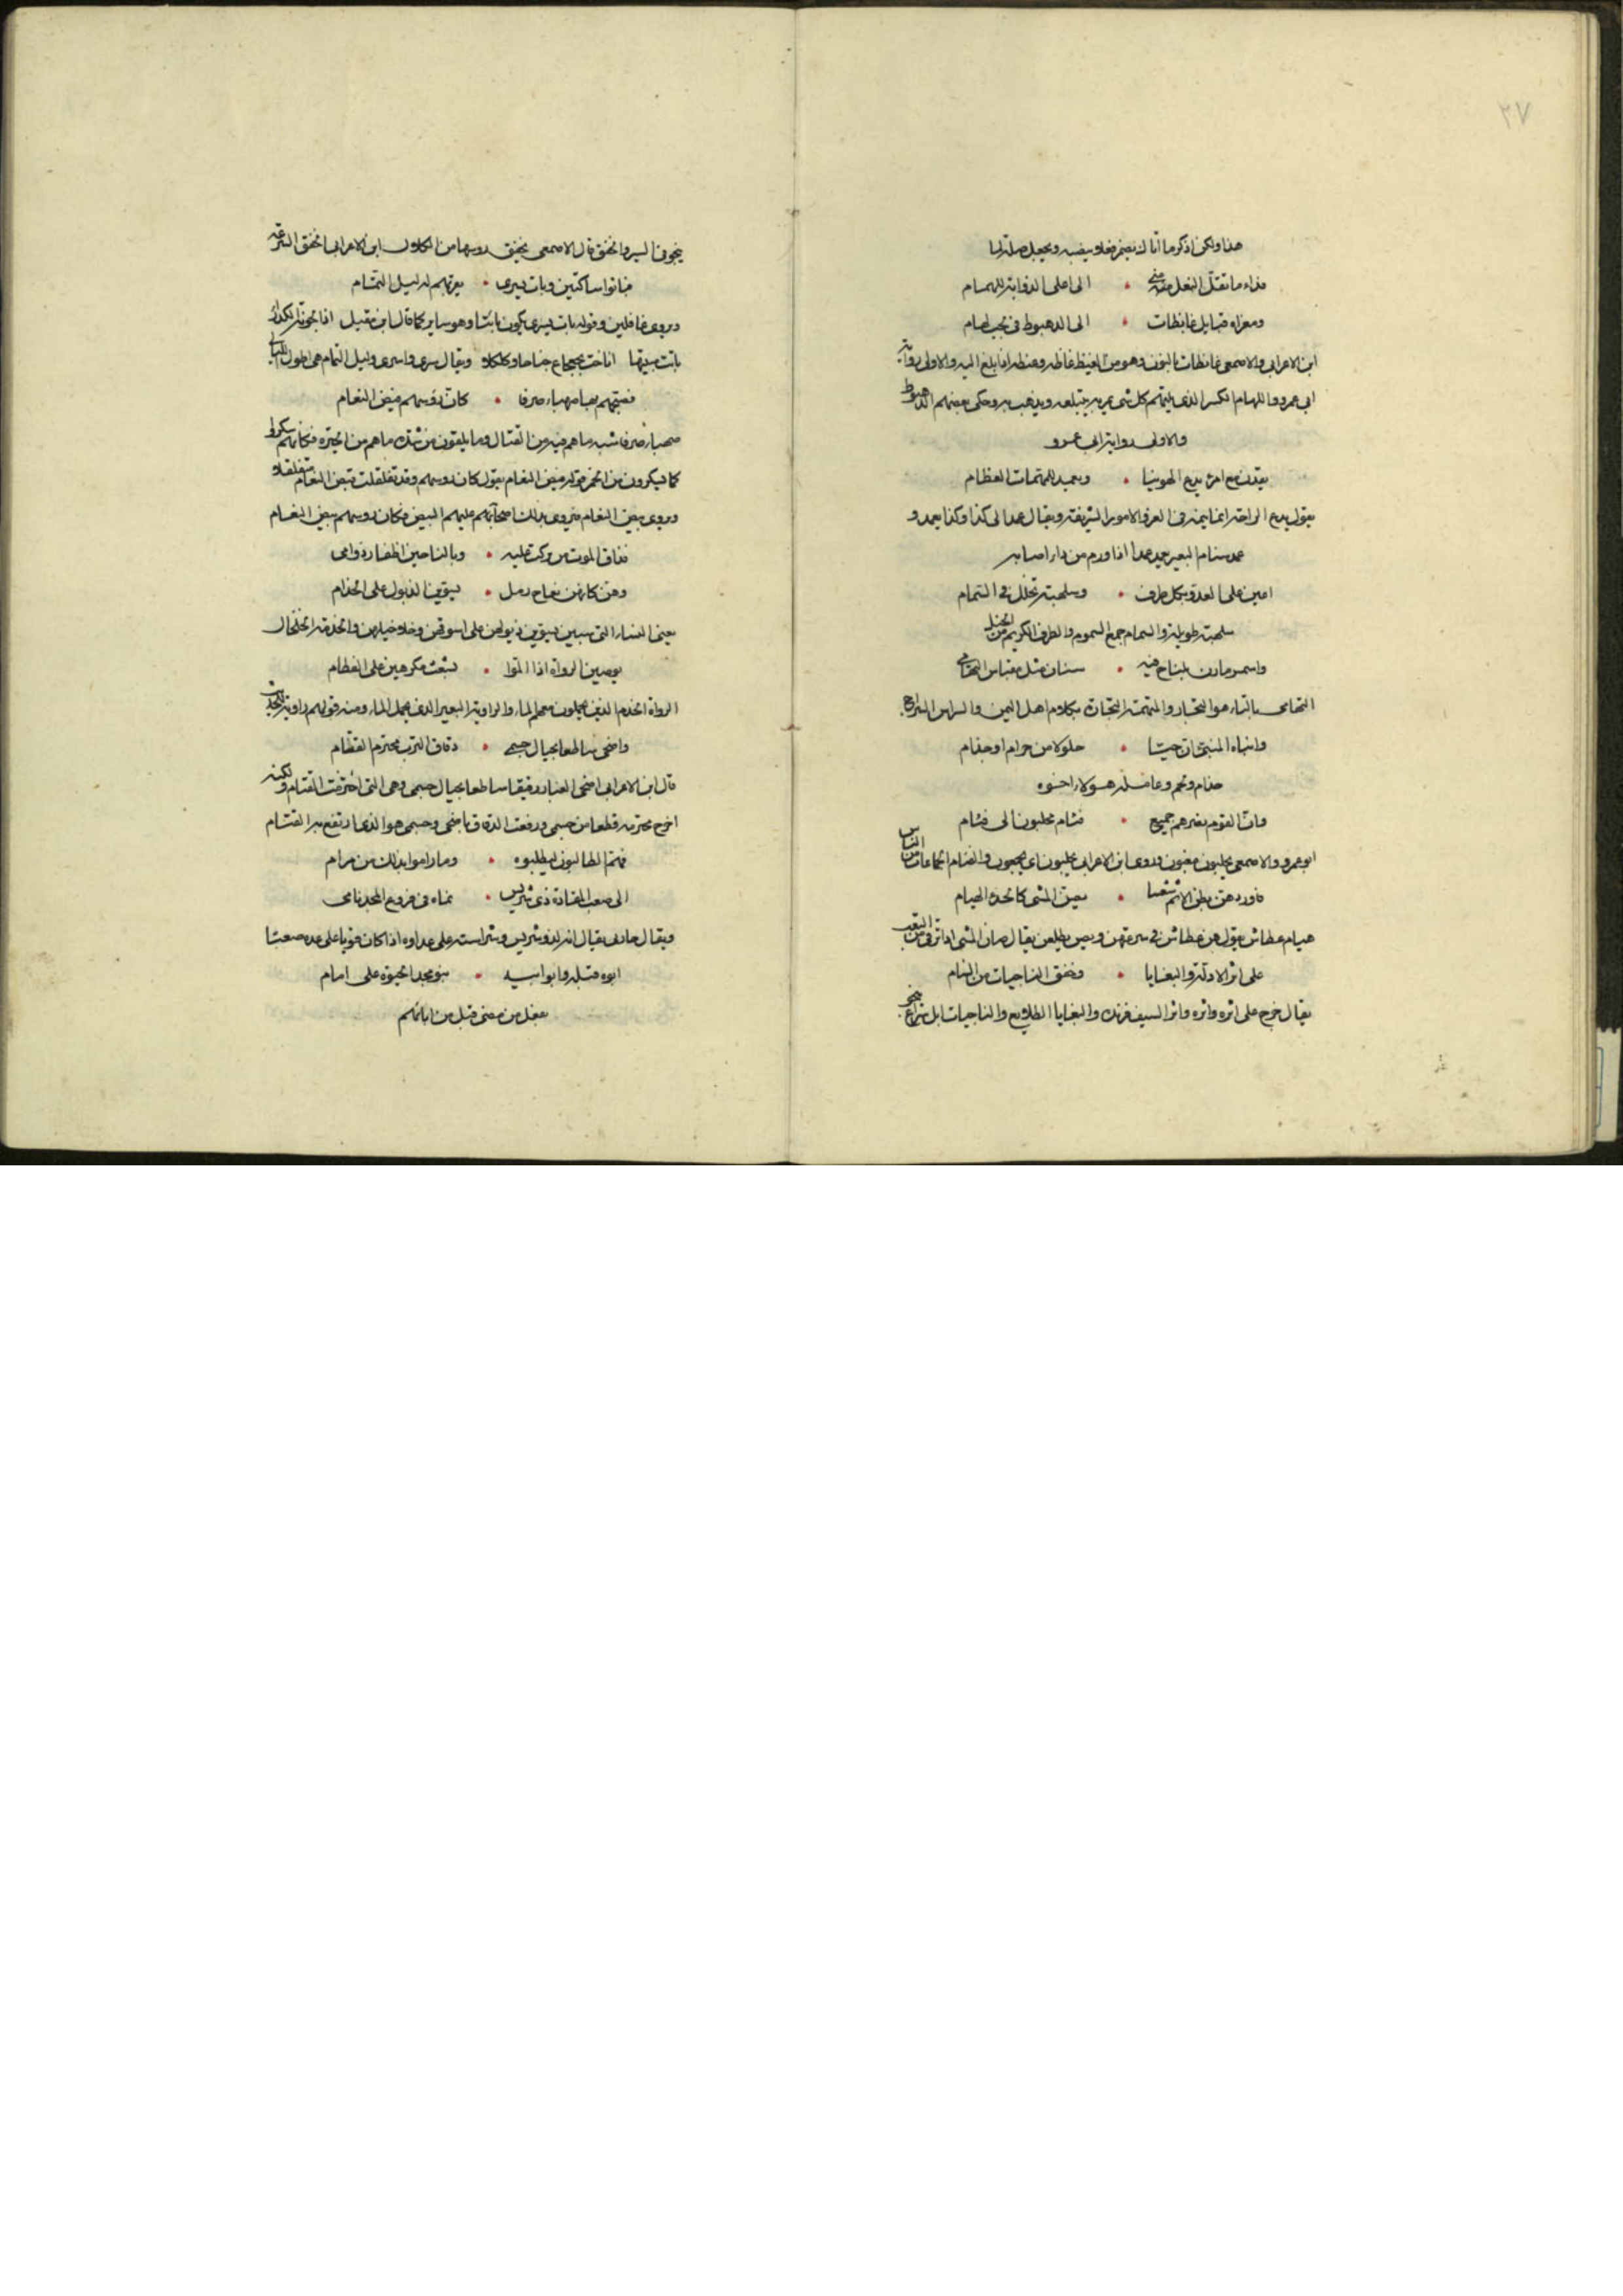 ٢٧
هذا ولكن اذكر ما اتاك يضمر فعلا وينصبه ويجعل صلة لما
فداء ما تقل النعل مني • الى اعلى الذوابة للهمام
ومغزاه قبايل غايظات • الى الذهيوط في لجب لهام
ابن الاعرابي والاصمعي غايظات بالنون وهو من الغيظ غاظه وعنظه اذا بلغ اليه والاولى رواية
ابي عمرو واللهام الكبير الذي يلتهم كل شي يمر به يبتلعه ويذهب به وحكى بعضهم الذهيوط
والاولى رواية ابي عمرو
يقدن مع امرئ يدع الهوينا • ويعمد للمهمات العظام
يقول يدع الراحة انما همه في الغزو الامور الشريفة ويقال عمد الى كذا وكذا يعمد و
عمد سنام البعير يعمد عمدا اذا ورم من داء اصابه
اعين على العدو بكل طرف • وسلهبة تجلل في السمام
سلهبة طويلة والسمام جمع السموم والطرف الكريم من الخيل
واسمر مارن يلتاح فيه • سنان مثل مقباس التهامي
التهامي بالتاء هو النجار والنهمة النجارة بكلام اهل اليمن والسراس السراج
وانباه المنبئ ان حيا • حلولا من حرام او جذام
جذام ولخم وعاملة هؤلاء اخوة
وان القوم نصرهم جميع • فئام مجلبون الى فئام
ابو عمرو والاصمعي مجلبون مغنون وروى ابن الاعرابي مجلبون اي مجمعون والفئام الجماعات من الناس
فاوردهن بطن الاتم شعثا • يصن المشي كالحداء الهيام
هيام عطاش يقول هن عطاش في سرعتهن ويصن يظلعن يقال صان المشي اذا اتقى من التعب
على اثر الادلة والبغايا • وخفق الناجيات من الشام
يقال خرج على اثره واثره واثر السيف فرنده والبغايا الطلايع والناجيات ابل سراع تنجو
ينجو في السير والخفق قال الاصمعي يخفق روسها من الكلال ابن الاعرابي الخفق السرعة
فباتوا ساكنين وبات يسري • يقربهم له ليل التمام
ويروى غافلين وقوله بات يسري يكون بائتا وهو ساير كما قال ابن مقبل
باتت مبيتها اناخت بجعجاع جناحا وكلكلا ويقال سرى واسرى وليل التمام هي اطول الليالي
فصبحهم بها صهباء صرفا • كان رؤسهم بيض النعام
صهباء صرفا شبه ما هم فيه من القتال وما يلقون من شدة ما هم من الحيرة فكانهم سكروا
كما يسكرون من الخمر قوله بيض النعام يقول كان روسهم وقد تفلقت بيض النعام متفلقا
ويروى بيض النعام يروى بذلك اصحابهم عليهم البيض فكان روسهم بيض النعام
فذاق الموت من بركت عليه • وبالناجين اظفار دوامي
وهن كانهن نعاج رمل • يسوين الذيول على الخدام
يعني النساء التي سبين يسوين ذيولهن على اسوقهن وخلاخيلهن والخدمة الخلخال
يوصين الرواة اذا المّوا • بشعث مكرهين على الفطام
الرواة الخدم الذين يحملون معهم الماء والراوية البعير الذي يحمل الماء ومنه قولهم راوية للحديث
واضحى ساطعا بجبال حسمى • دقاق الترب محتزم القتام
قال ابن الاعرابي اضحى الغبار دقيقا ساطعا بجبال حسمى وهي التي احترقت القتام ولكنه
اخرج محتزمه قطعا من حسمى ورفعت الدقاق باضحى وحسمى هو الذي ارتفع به القتام
فهم الطالبون ليطلبوه • وما راموا بذلك من مرام
الى صعب المقادة ذي شريس • نماه في فروع المجد نامي
ويقال صادف يقال انه لذو شريس وشراسة على عداوه اذا كان قويا على عدوه صعبا
ابوه قبله وابو ابيه • بنو مجد الحيوة على امام
يفعل من مضى قبل من ابائهم